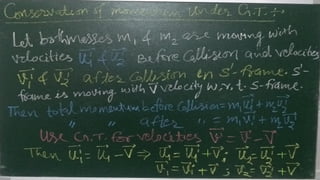 Conservation of momentum Under G.T. ÷
Let both masses m₁ & m₂ are moving with
velocities u⃗₁' & u⃗₂' before Collision and velocities
v⃗₁' & v⃗₂' after Collision in S'-frame. S'
frame is moving with V⃗ velocity w.r.t. S-frame.
Then total momentum before Collision = m₁u⃗₁' + m₂u⃗₂'
" " after " = m₁v⃗₁' + m₂v⃗₂'
Use G.T. for velocities v⃗' = v⃗ - V⃗
Then u⃗₁' = u⃗₁ - V⃗ ⇒ u⃗₁ = u⃗₁' + V⃗, u⃗₂ = u⃗₂' + V⃗
v⃗₁ = v⃗₁' + V⃗, v⃗₂ = v⃗₂' + V⃗